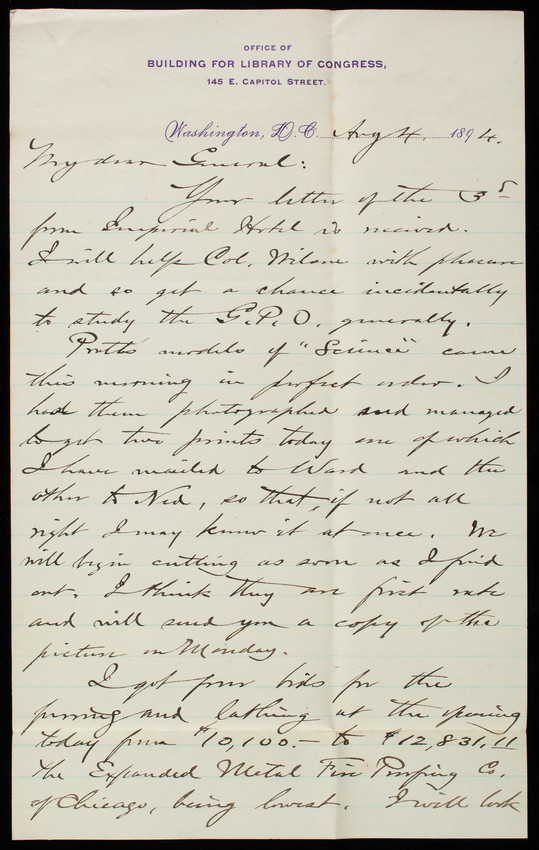 OFFICE OF
BUILDING FOR LIBRARY OF CONGRESS,
145 E. CAPITOL STREET.
Washington, D.C. Aug 4, 1894.
My dear General:
Your letter of the 3d
from Imperial Hotel is received.
I will help Col. Wilson with pleasure
and so get a chance incidentally
to study the G.P.O. generally.
Pratt's models of "Science" came
this morning in perfect order. I
had them photographed and managed
to get two prints today one of which
I have mailed to Ward and the
other to Ned, so that, if not all
right I may know it at once. We
will begin cutting as soon as I find
out. I think they are first rate
and will send you a copy of the
picture on Monday.
I got four bids for the
furring and lathing at the opening
today from $10,100.- to $12,831.11
the Expanded Metal Fire Proofing Co.
of Chicago, being lowest. I will look